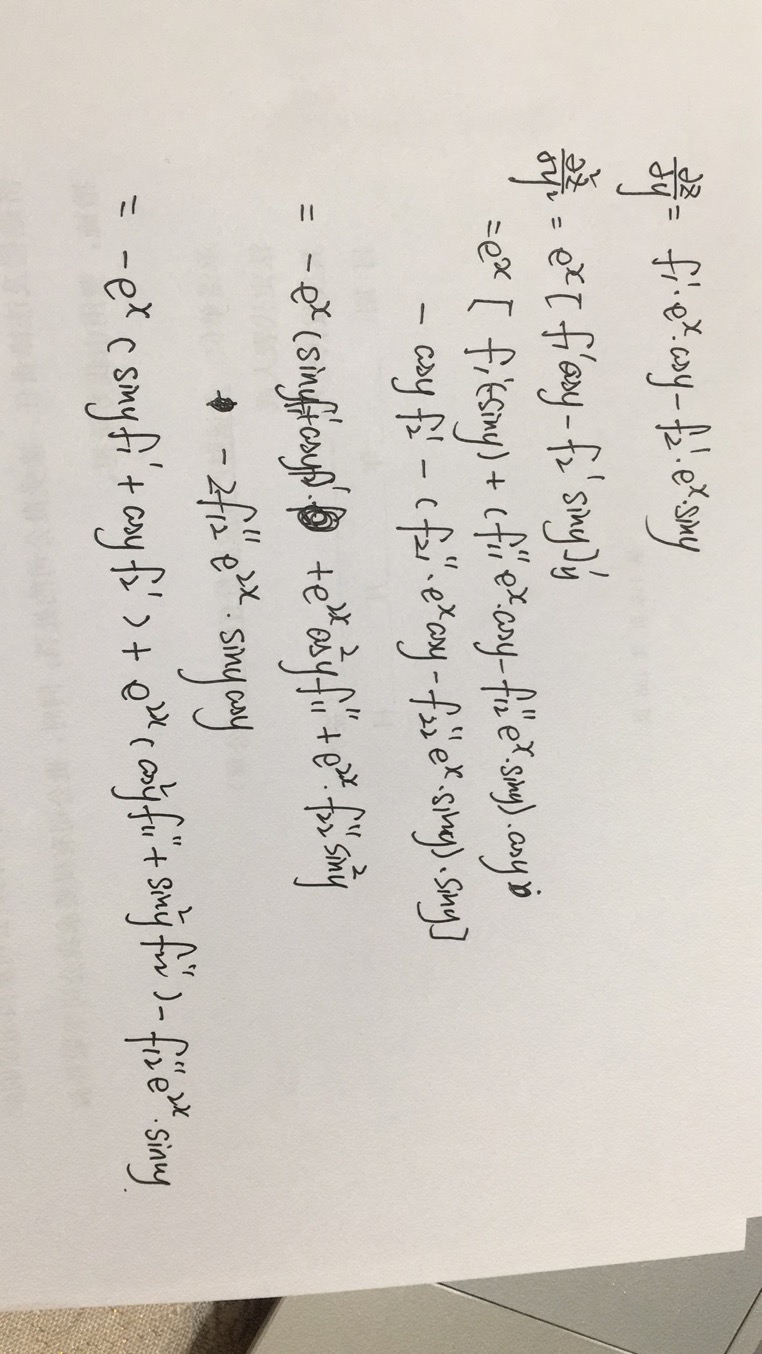 ∂z/∂y = f₁'·eˣ·cosy − f₂'·eˣ·siny
∂²z/∂y² = eˣ[f₁'cosy − f₂'siny]'y
= eˣ[ f₁'(−siny) + (f₁₁''eˣ·cosy − f₁₂''eˣ·siny)·cosy
− cosy f₂' − (f₂₁''·eˣcosy − f₂₂''eˣ·siny)·siny]
= − eˣ(siny f₁' + cosy f₂') + e²ˣcos²y f₁₁'' + e²ˣ·f₂₂''sin²y
− 2f₁₂''e²ˣ·siny cosy
= − eˣ(siny f₁' + cosy f₂') + e²ˣ(cos²y f₁₁'' + sin²y f₂₂'') − f₁₂''e²ˣ·siny